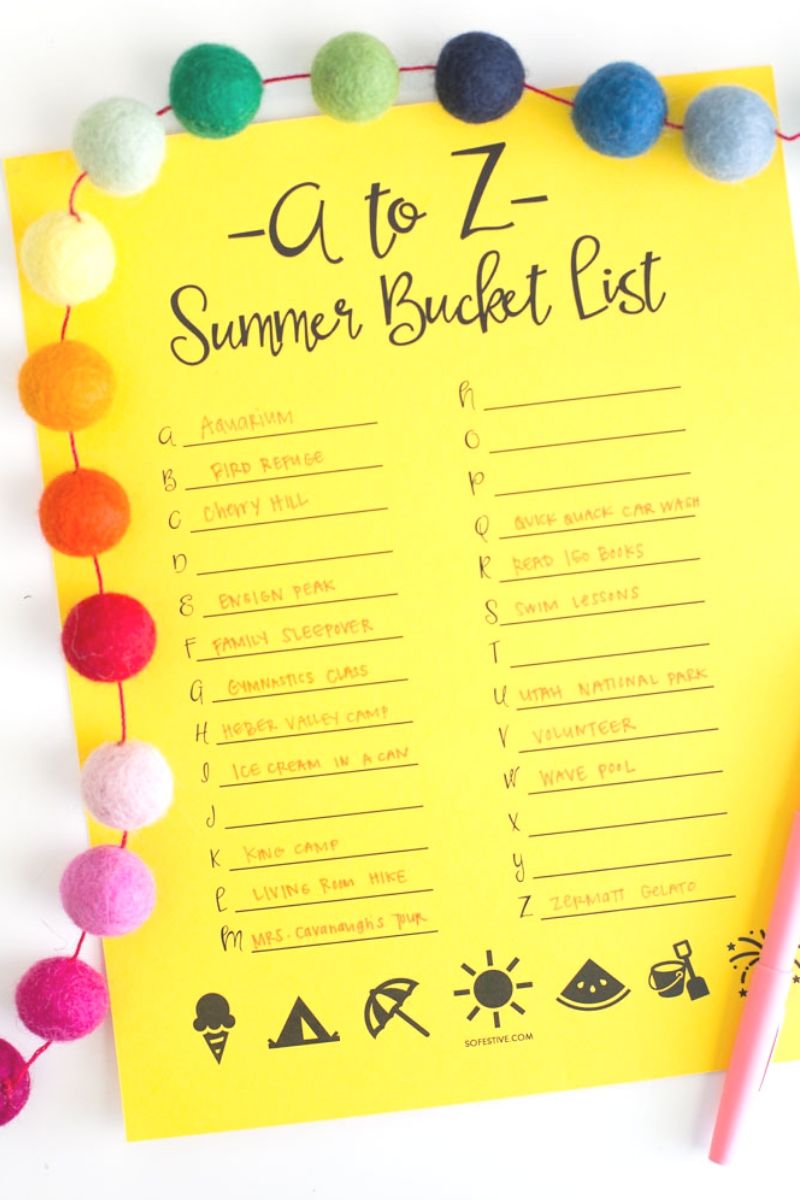 -A to Z-
Summer Bucket List
A Aquarium
B BIRD REFUGE
C Cherry HILL
D
E ENSIGN PEAK
F FAMILY SLEEPOVER
G GYMNASTICS CLASS
H HEBER VALLEY CAMP
I ICE CREAM IN A CAN
J
K KING CAMP
L LIVING Room HIKE
M MRS. Cavanaugh's Tour
n
O
P
Q QUICK QUACK CAR WASH
R READ 150 BOOKS
S SWIM LESSONS
T
U UTAH NATIONAL PARK
V VOLUNTEER
W WAVE POOL
X
y
Z ZERMATT GELATO
SOFESTIVE.COM